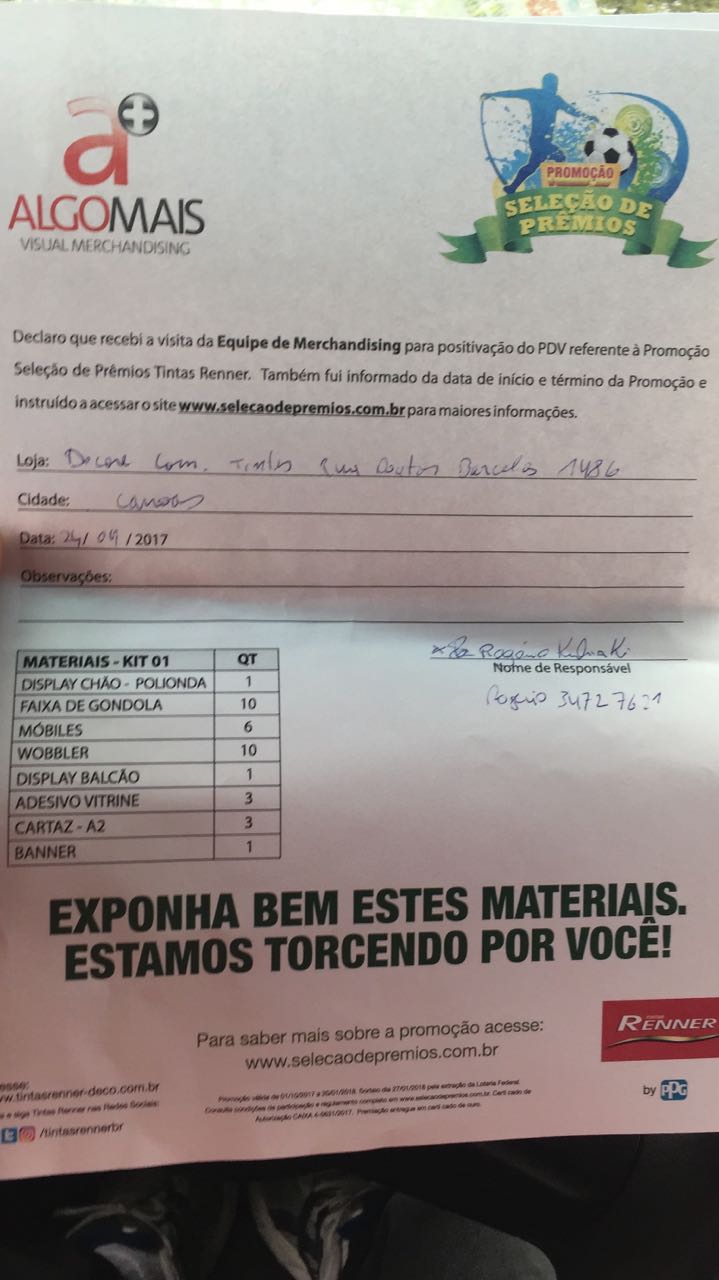 a+
ALGOMAIS
VISUAL MERCHANDISING
PROMOÇÃO
SELEÇÃO DE
PRÊMIOS
Declaro que recebi a visita da Equipe de Merchandising para positivação do PDV referente à Promoção
Seleção de Prêmios Tintas Renner. Também fui informado da data de início e término da Promoção e
instruído a acessar o site www.selecaodepremios.com.br para maiores informações.
Loja: Decore Com. Tintas Rua Doutor Barcelos 1486
Cidade: Canoas
Data: 24/ 09 / 2017
Observações:
Rogério
Nome de Responsável
Rogerio 34727621
MATERIAIS - KIT 01 QT
DISPLAY CHÃO - POLIONDA 1
FAIXA DE GONDOLA 10
MÓBILES 6
WOBBLER 10
DISPLAY BALCÃO 1
ADESIVO VITRINE 3
CARTAZ - A2 3
BANNER 1
EXPONHA BEM ESTES MATERIAIS.
ESTAMOS TORCENDO POR VOCÊ!
Para saber mais sobre a promoção acesse:
www.selecaodepremios.com.br
TINTAS
RENNER
by PPG
esse:
w.tintasrenner-deco.com.br
e e siga Tintas Renner nas Redes Sociais:
/tintasrennerbr
Promoção válida de 01/10/2017 a 20/01/2018. Sorteio dia 27/01/2018 pela extração da Loteria Federal.
Consulte condições de participação e regulamento completo em www.selecaodepremios.com.br. Certificado de
Autorização CAIXA Premiação entregue em certificado de ouro.